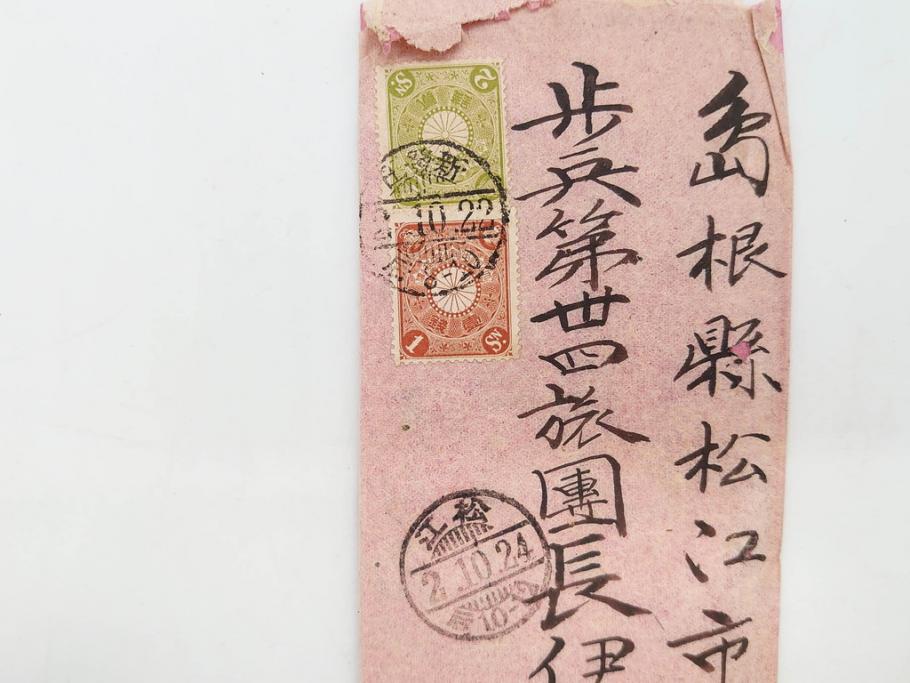 島根縣松江市
歩兵第丗四旅團長伊
2
Sn.
10.22
1
Sn.
松江
2.10.24